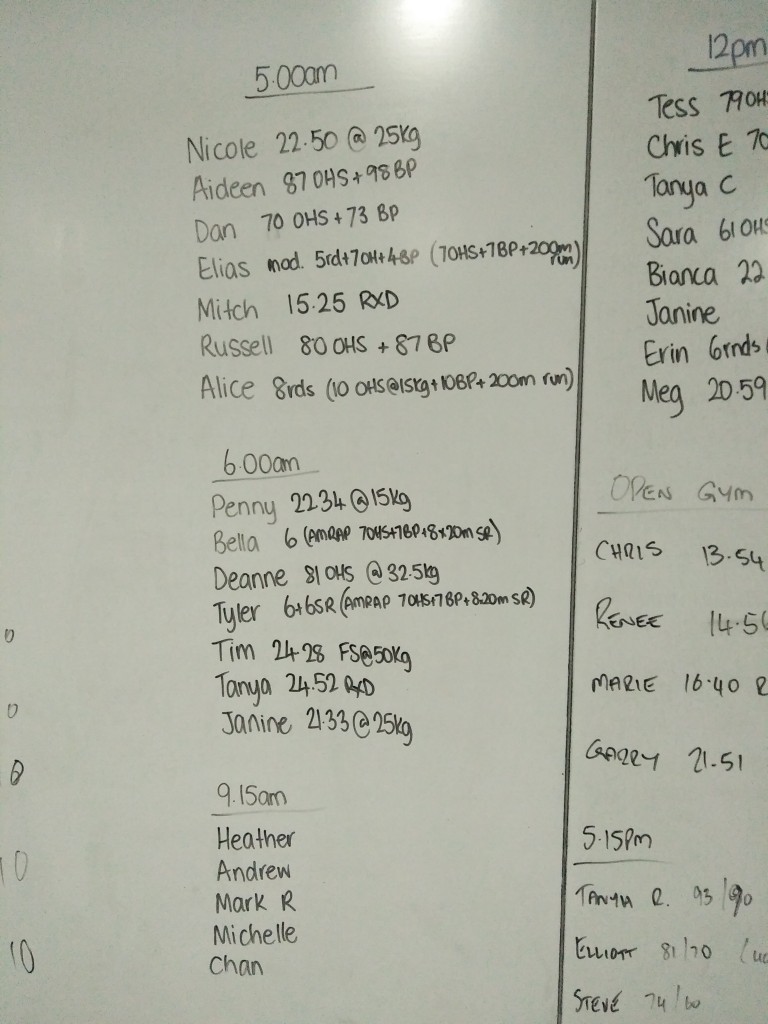 5.00am
Nicole 22.50 @ 25kg
Aideen 87 OHS + 98 BP
Dan 70 OHS + 73 BP
Elias mod. 5rd+7OH+4BP (7OHS+7BP+200m run)
Mitch 15.25 RXD
Russell 80 OHS + 87 BP
Alice 8rds (10 OHS@15kg+10BP+200m run)
6.00am
Penny 22.34 @ 15kg
Bella 6 (AMRAP 7OHS+7BP+8x20m SR)
Deanne 81 OHS @ 32.5kg
Tyler 6+6SR (AMRAP 7OHS+7BP+8.20m SR)
Tim 24.28 FS@50kg
Tanya 24.52 RXD
Janine 21.33 @ 25kg
9.15am
Heather
Andrew
Mark R
Michelle
Chan
0
0
0
10
10
12pm
Tess 79 OHS
Chris E 70
Tanya C
Sara 61 OHS
Bianca 22
Janine
Erin 6rnds
Meg 20.59
OPEN GYM
CHRIS 13.54
RENEE 14.56
MARIE 16.40 R
GARRY 21.51
5.15pm
TANYA R. 93/90
ELLIOTT 81/70
STEVE 74/60